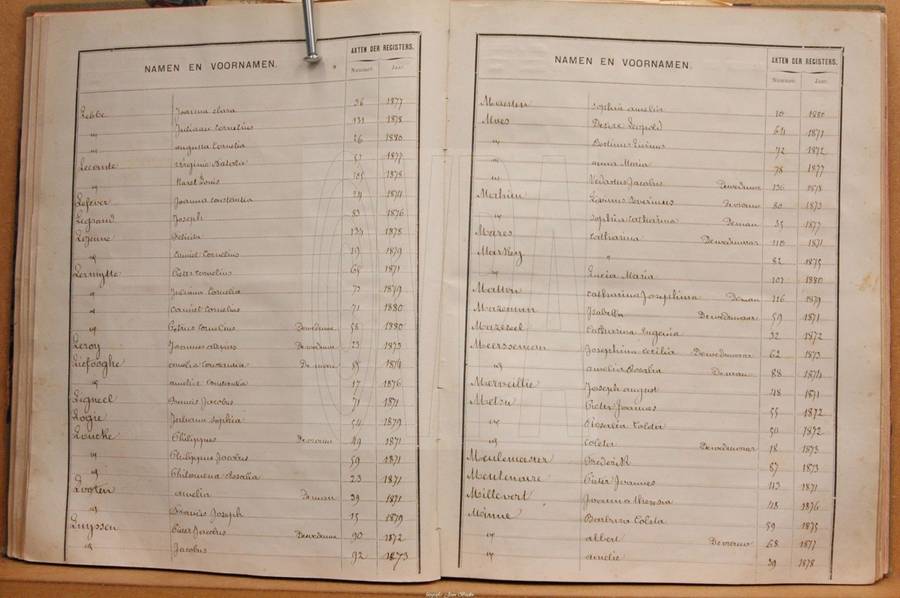 NAMEN EN VOORNAMEN. AKTEN DER REGISTERS.
Nummer. Jaar.
Lebbe 36 1877
" Juliaan Cornelius 131 1878
" augusta Cornelia 26 1880
Lecomte Virginie 57 1877
" Karel Louis 105 1878
Lefever Joanna Constantia 24 1874
Legrand Joseph 83 1876
Lejeune 134 1878
" Camiel Cornelius 19 1879
Lermytte Pieter Cornelius 65 1871
" Juliana Cornelia 70 1879
" Camiel Cornelius 71 1880
" Petrus Cornelius 58 1880
Leroy Joannes 23 1873
Liefooghe amelia Constantia De man 85 1874
" amelie Constantia 17 1876
Ligneel Francis Jacobus 71 1871
Logie Juliana Sophia 54 1879
Loncke Philippus De vrouw 49 1871
" Philippus Jacobus 59 1871
" Philomena Rosalia 23 1871
Looten amelia De man 39 1871
" Francis Joseph 15 1879
Luyssen Pieter Jacobus 90 1872
" Jacobus 92 1873
NAMEN EN VOORNAMEN. AKTEN DER REGISTERS.
Nummer. Jaar.
Maerten Sophia amelia 10 1880
Maes Desire Leopold 64 1871
" 72 1872
" anna Maria 78 1877
" Vedastus Jacobus 136 1878
Mahieu Severinus De vrouw 80 1873
" Sophia Catharina De man 35 1877
Mares Catharina De weduwnaar 110 1871
Markey " 82 1875
" Lucia Maria 103 1880
Matton Catharina Josephina De man 116 1879
Mazeman Isabella De weduwnaar 59 1871
Mazereel Catharina Eugenia 32 1872
Meersseman Josephina Cecilia De weduwnaar 62 1873
" amelia Rosalia De man 88 1874
Merveillie Joseph august 48 1871
Metsu Pieter Joannes 55 1872
" Rosalia Coleta 50 1872
" Coleta De weduwnaar 18 1873
Meulemeester Frederik 87 1873
Meulenaere Pieter Joannes 113 1871
Millevert Joanna Theresia 48 1876
Minne Barbara Coleta 59 1875
" albert De vrouw 68 1877
" amelie 39 1878